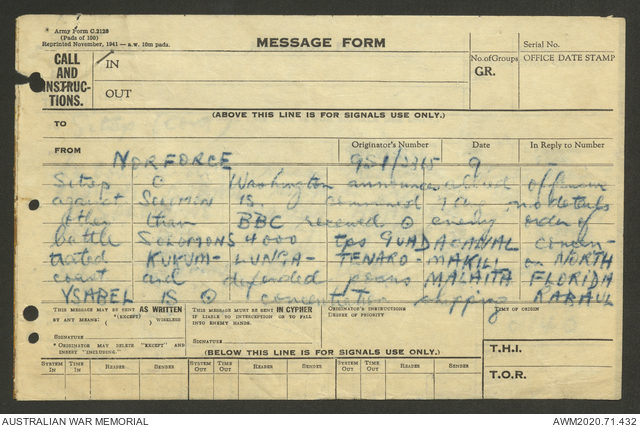 Army Form C.2128
(Pads of 100)
Reprinted November, 1941 — a.w. 10m pads.
MESSAGE FORM
Serial No.
CALL
AND
INSTRUC-
TIONS.
IN
OUT
No. of Groups
GR.
OFFICE DATE STAMP
(ABOVE THIS LINE IS FOR SIGNALS USE ONLY.)
TO
FROM
Originator's Number
Date
In Reply to Number
NORFORCE
9
Sitrep Washington announces allied offensive
against SOLOMON IS. commenced 7 Aug no details
other than BBC received enemy order of
battle SOLOMONS 4000 tps GUADACANAL concen-
trated KUKUM- LUNGA- TENARO- MAKILI on NORTH
coast and defended posns MALAITA FLORIDA
YSABEL IS concentration shipping RABAUL
THIS MESSAGE MAY BE SENT AS WRITTEN
BY ANY MEANS. ( (EXCEPT) ) WIRELESS
SIGNATURE
* ORIGINATOR MAY DELETE "EXCEPT" AND
INSERT "INCLUDING."
THIS MESSAGE MUST BE SENT IN CIPHER
IF LIABLE TO INTERCEPTION OR TO FALL
INTO ENEMY HANDS.
SIGNATURE
ORIGINATOR'S INSTRUCTIONS
DEGREE OF PRIORITY
TIME OF ORIGIN
(BELOW THIS LINE IS FOR SIGNALS USE ONLY.)
T.H.I.
T.O.R.
SYSTEM IN
TIME IN
READER
SENDER
SYSTEM OUT
TIME OUT
READER
SENDER
SYSTEM OUT
TIME OUT
READER
SENDER
AUSTRALIAN WAR MEMORIAL
AWM2020.71.432